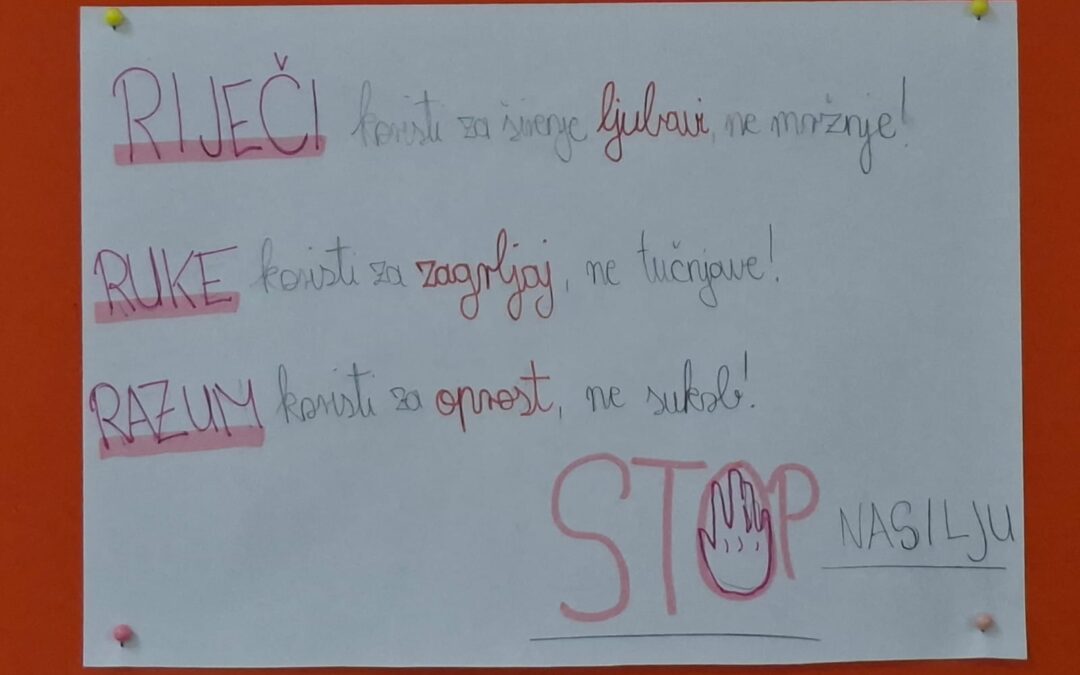 RIJEČI koristi za širenje ljubavi, ne mržnje!
RUKE koristi za zagrljaj, ne tučnjave!
RAZUM koristi za oprost, ne sukob!
STOP NASILJU